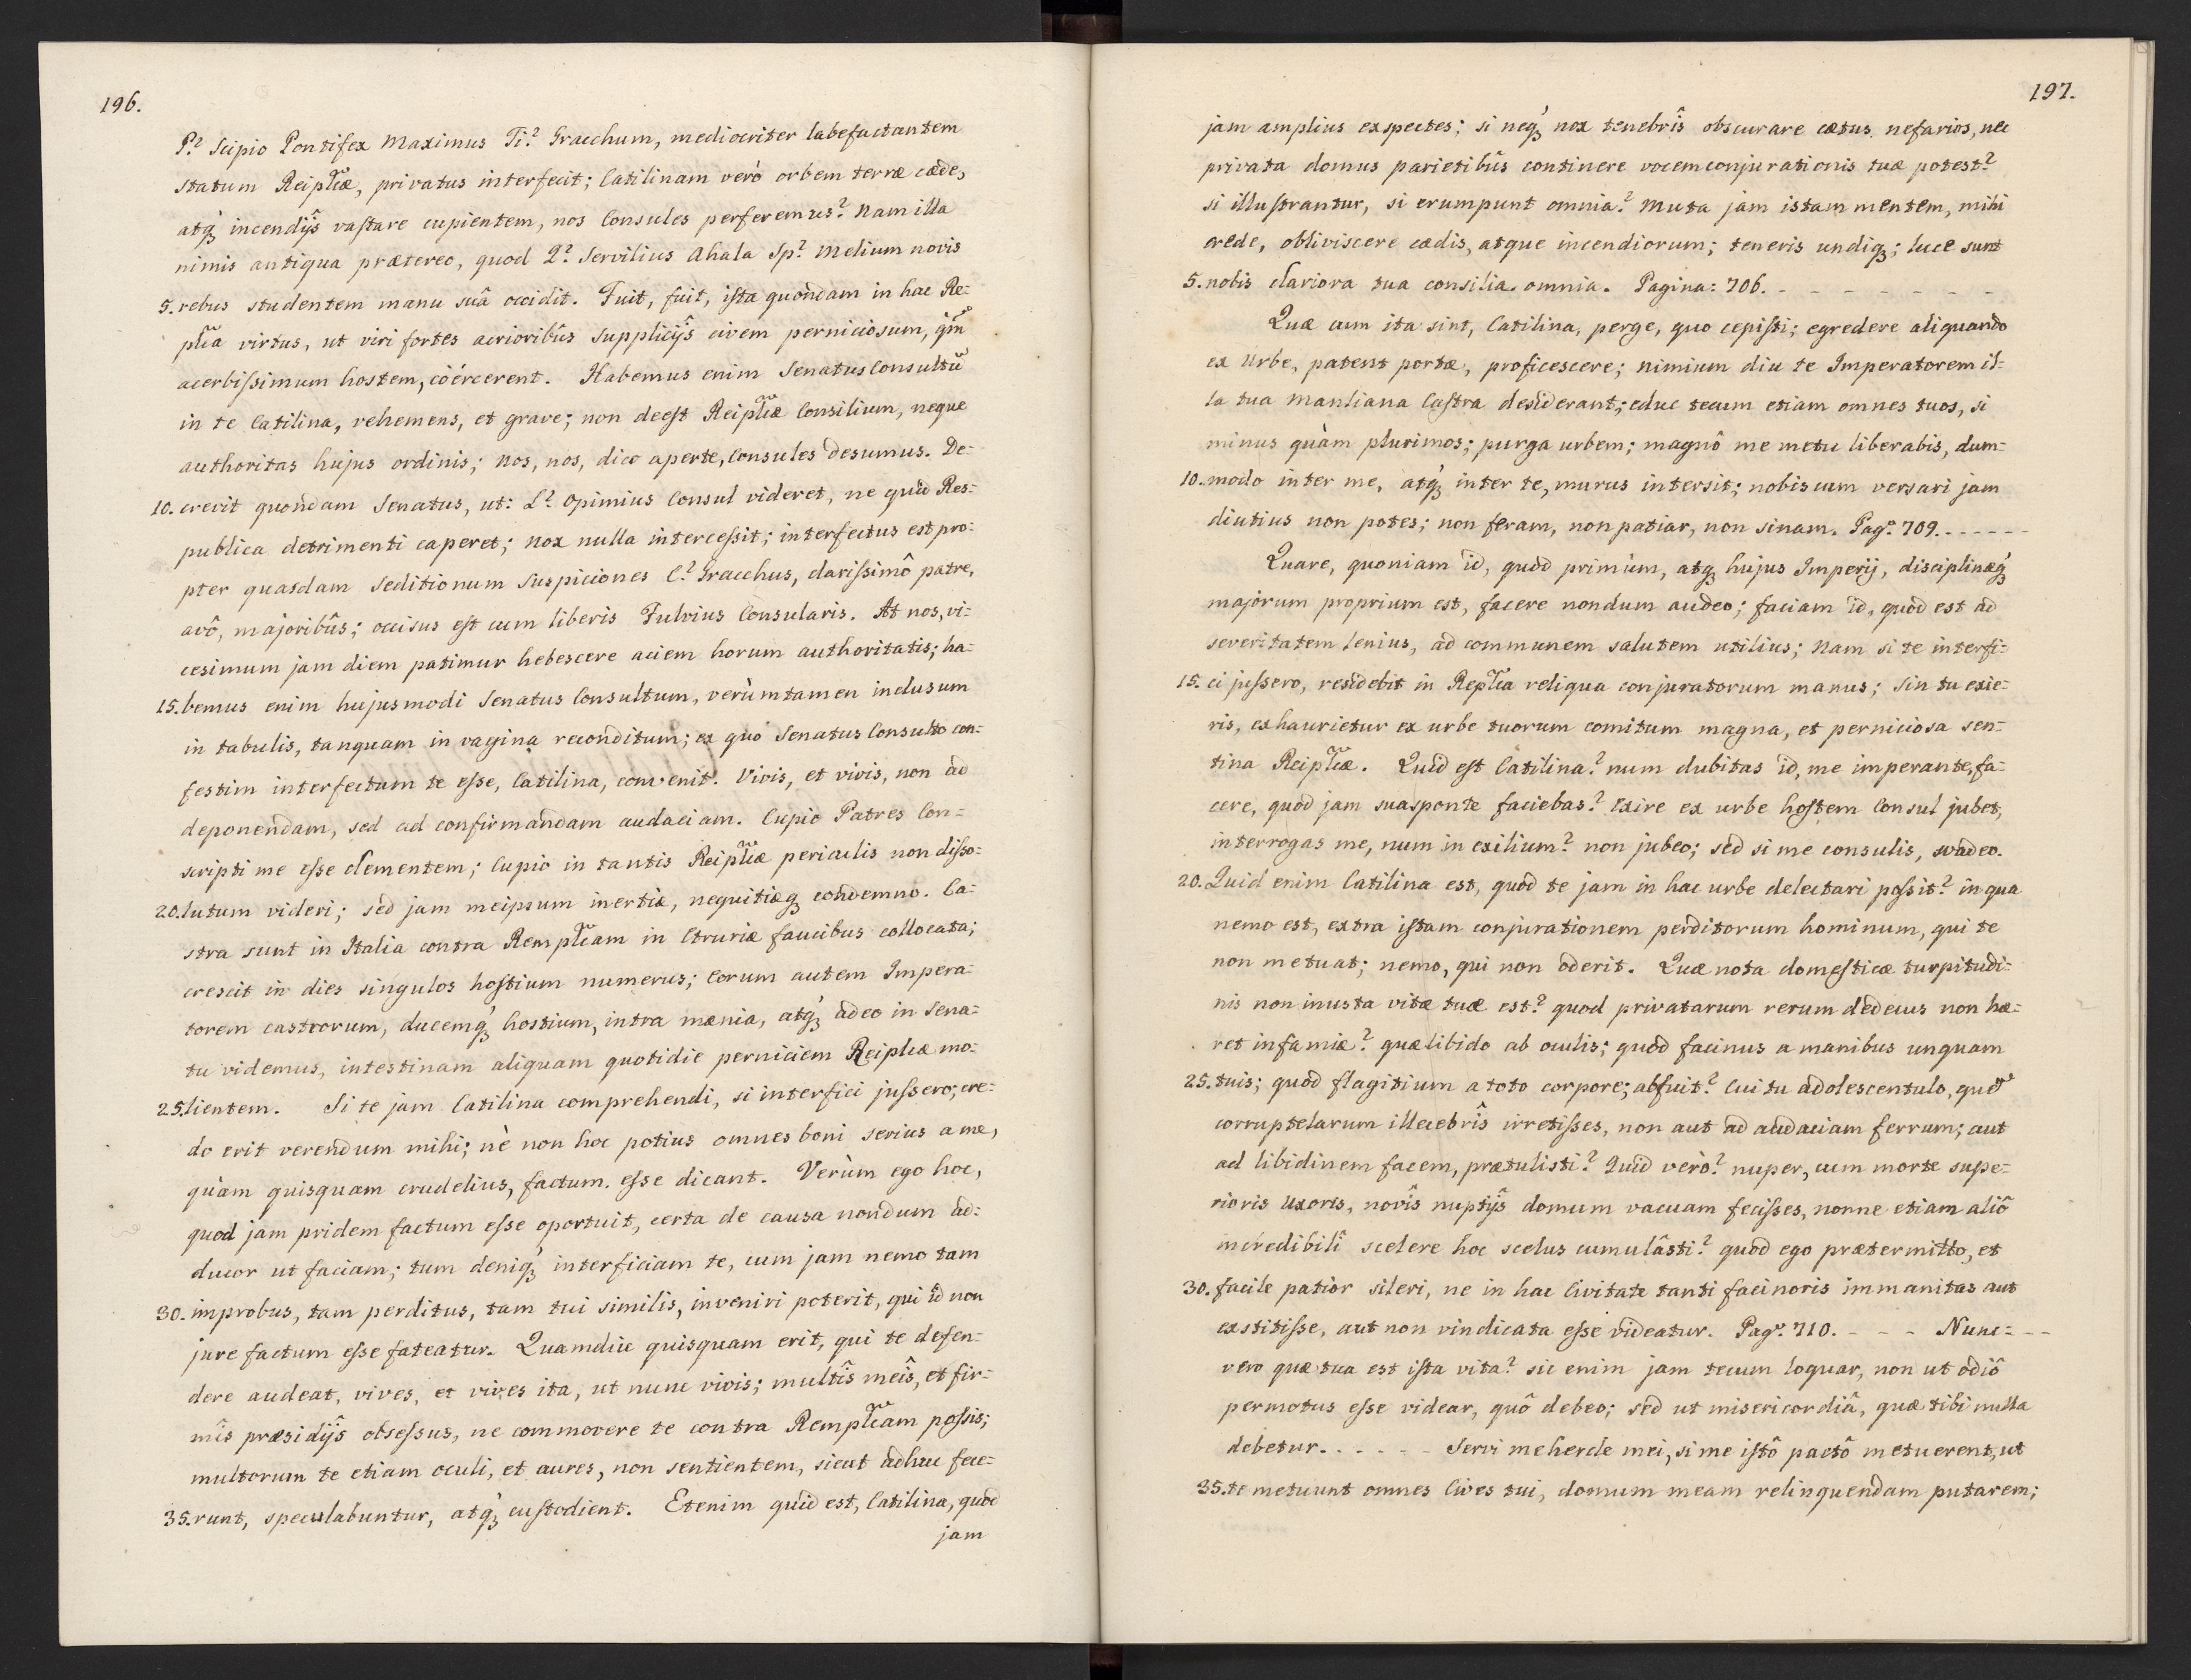 196.
P.? Scipio Pontifex Maximus Ti? Gracchum, mediocriter labefactantem
statum Reiplicæ, privatus interfecit; Catilinam verò orbem terræ cæde,
atq́ȝ incendijs vastare cupientem, nos Consules perferemus? Nam illa
nimis antiqua prætereo, quod Q? Servilius Ahala Sp? Melium novis
5. rebus studentem manu suâ occidit. Fuit, fuit, ista quondam in hac Re-
plica virtus, ut viri fortes acrioribûs supplicijs civem perniciosum, qm̃
acerbissimum hostem, cöércerent. Habemus enim Senatus Consultũ
in te Catilina, vehemens, et grave; non deest Reiplicæ Consilium, neque
authoritas hujus ordinis; nos, nos, dico aperte, Consules desumus. De-
10. crevit quondam Senatus, ut: L? Opimius Consul videret, ne quid Res-
publica detrimenti caperet; nox nulla intercessit; interfectus est pro-
pter quasdam seditionum suspiciones C? Gracchus, clarissimô patre,
avô, majoribûs; occisus est cum liberis Fulvius Consularis. At nos, vi-
cesimum jam diem patimur hebescere aciem horum authoritatis; ha-
15. bemus enim hujusmodi Senatus Consultum, verùmtamen inclusum
in tabulis, tanquam in vagina reconditum; ex quô Senatus Consulto con-
festim interfectum te esse, Catilina, convenit. Vivis, et vivis, non ad
deponendam, sed ad confirmandam audaciam. Cupio Patres Con-
scripti me esse clementem; Cupio in tantis Reiplicæ periculis non disso-
20. lutum videri; sed jam meipsum inertiæ, nequitiæqȝ condemno. Ca-
stra sunt in Italia contra Remplicam in Etruriæ faucibus collocata;
crescit in dies singulos hostium numerus; Eorum autem Impera-
torem castrorum, ducemq́ȝ hostium, intra mænia, atq́ȝ adeo in Sena-
tu videmus, intestinam aliquam quotidie perniciem Reiplicæ mo-
25. lientem. Si te jam Catilina comprehendi, si interfici jussero; cre-
do erit verendum mihi; nè non hoc potius omnes boni serius a me,
quàm quisquam crudelius, factum esse dicant. Verùm ego hoc,
quod jam pridem factum esse oportuit, certa de causa nondum ad-
ducor ut faciam; tum deniq́ȝ interficiam te, cum jam nemo tam
30. improbus, tam perditus, tam tui similis, inveniri poterit, qui id non
jure factum esse fateatur. Quamdiu quisquam erit, qui te defen-
dere audeat, vives, et vives ita, ut nunc vivis; multîs meîs, et fir-
mîs præsidijs obsessus, ne commovere te contra Remplicam possis;
multorum te etiam oculi, et aures, non sentientem, sicut adhuc fece-
35. runt, speculabuntur, atq́ȝ custodient. Etenim quid est, Catilina, quod
jam
197.
jam amplius exspectes; si neq́ȝ nox tenebrîs obscurare cætus nefarios, nec
privata domus parietibûs continere vocem conjurationis tuæ potest?
si illustrantur, si erumpunt omnia? Muta jam istam mentem, mihi
crede, obliviscere cædis, atque incendiorum; teneris undiqȝ; luce sunt
5. nobis clariora tua consilia omnia. Pagina: 706. - - - - - - - -
Quæ cum ita sint, Catilina, perge, quo cepisti; egredere aliquando
ex Urbe, patent portæ, proficescere; nimium diu te Imperatorem il-
la tua Manliana Castra desiderant; educ tecum etiam omnes tuos, si
minus quàm plurimos; purga urbem; magnô me metu liberabis, dum-
10. modo inter me, atq́ȝ inter te, murus intersit; nobiscum versari jam
diutius non potes; non feram, non patiar, non sinam. Pagª 709. - - - - - -
Quare, quoniam id, quod primùm, atqȝ hujus Imperij, disciplinæq́ȝ
majorum proprium est, facere nondum audeo; faciam id, quod est ad
severitatem lenius, ad communem salutem utilius; Nam si te interfi-
15. ci jussero, residebit in Replica reliqua conjuratorum manus; Sin tu exie-
ris, exhaurietur ex urbe tuorum comitum magna, et perniciosa sen-
tina Reiplicæ. Quid est Catilina? num dubitas id, me imperante, fa-
cere, quod jam sua sponte faciebas? Exire ex urbe hostem Consul jubet,
interrogas me, num in exilium? non jubeo; sed si me consulis, svadeo.
20. Quid enim Catilina est, quod te jam in hac urbe delectari possit? in qua
nemo est, extra istam conjurationem perditorum hominum, qui te
non metuat; nemo, qui non oderit. Quæ nota domesticæ turpitudi-
nis non inusta vitæ tuæ est? quod privatarum rerum dedecus non hæ-
ret infamiæ? quæ libido ab oculis; quod facinus a manibus unquam
25. tuis; quod flagitium a toto corpore; abfuit? Cui tu adolescentulo, que͂
corruptelarum illecebrîs irretisses, non aut ad audaciam ferrum; aut
ad libidinem facem, prætulisti? Quid verò? nuper, cum morte supe-
rioris Uxoris, novîs nuptijs domum vacuam fecisses, nonne etiam aliô
incredibilî scelere hoc scelus cumulâsti? quod ego prætermitto, et
30. facile patior sileri, ne in hac Civitate tanti facinoris immanitas aut
exstitisse, aut non vindicata esse videatur. Pagª 710. - - - Nunc- - -
vero quæ tua est ista vita? sic enim jam tecum loquar, non ut odiô
permotus esse videar, quô debeo; sed ut misericordiâ, quæ tibi nulla
debetur. - - - - - Servi meherele mei, si me istô pactô metuerent, ut
35. te metuunt omnes Cives tui, domum meam relinquendam putarem;